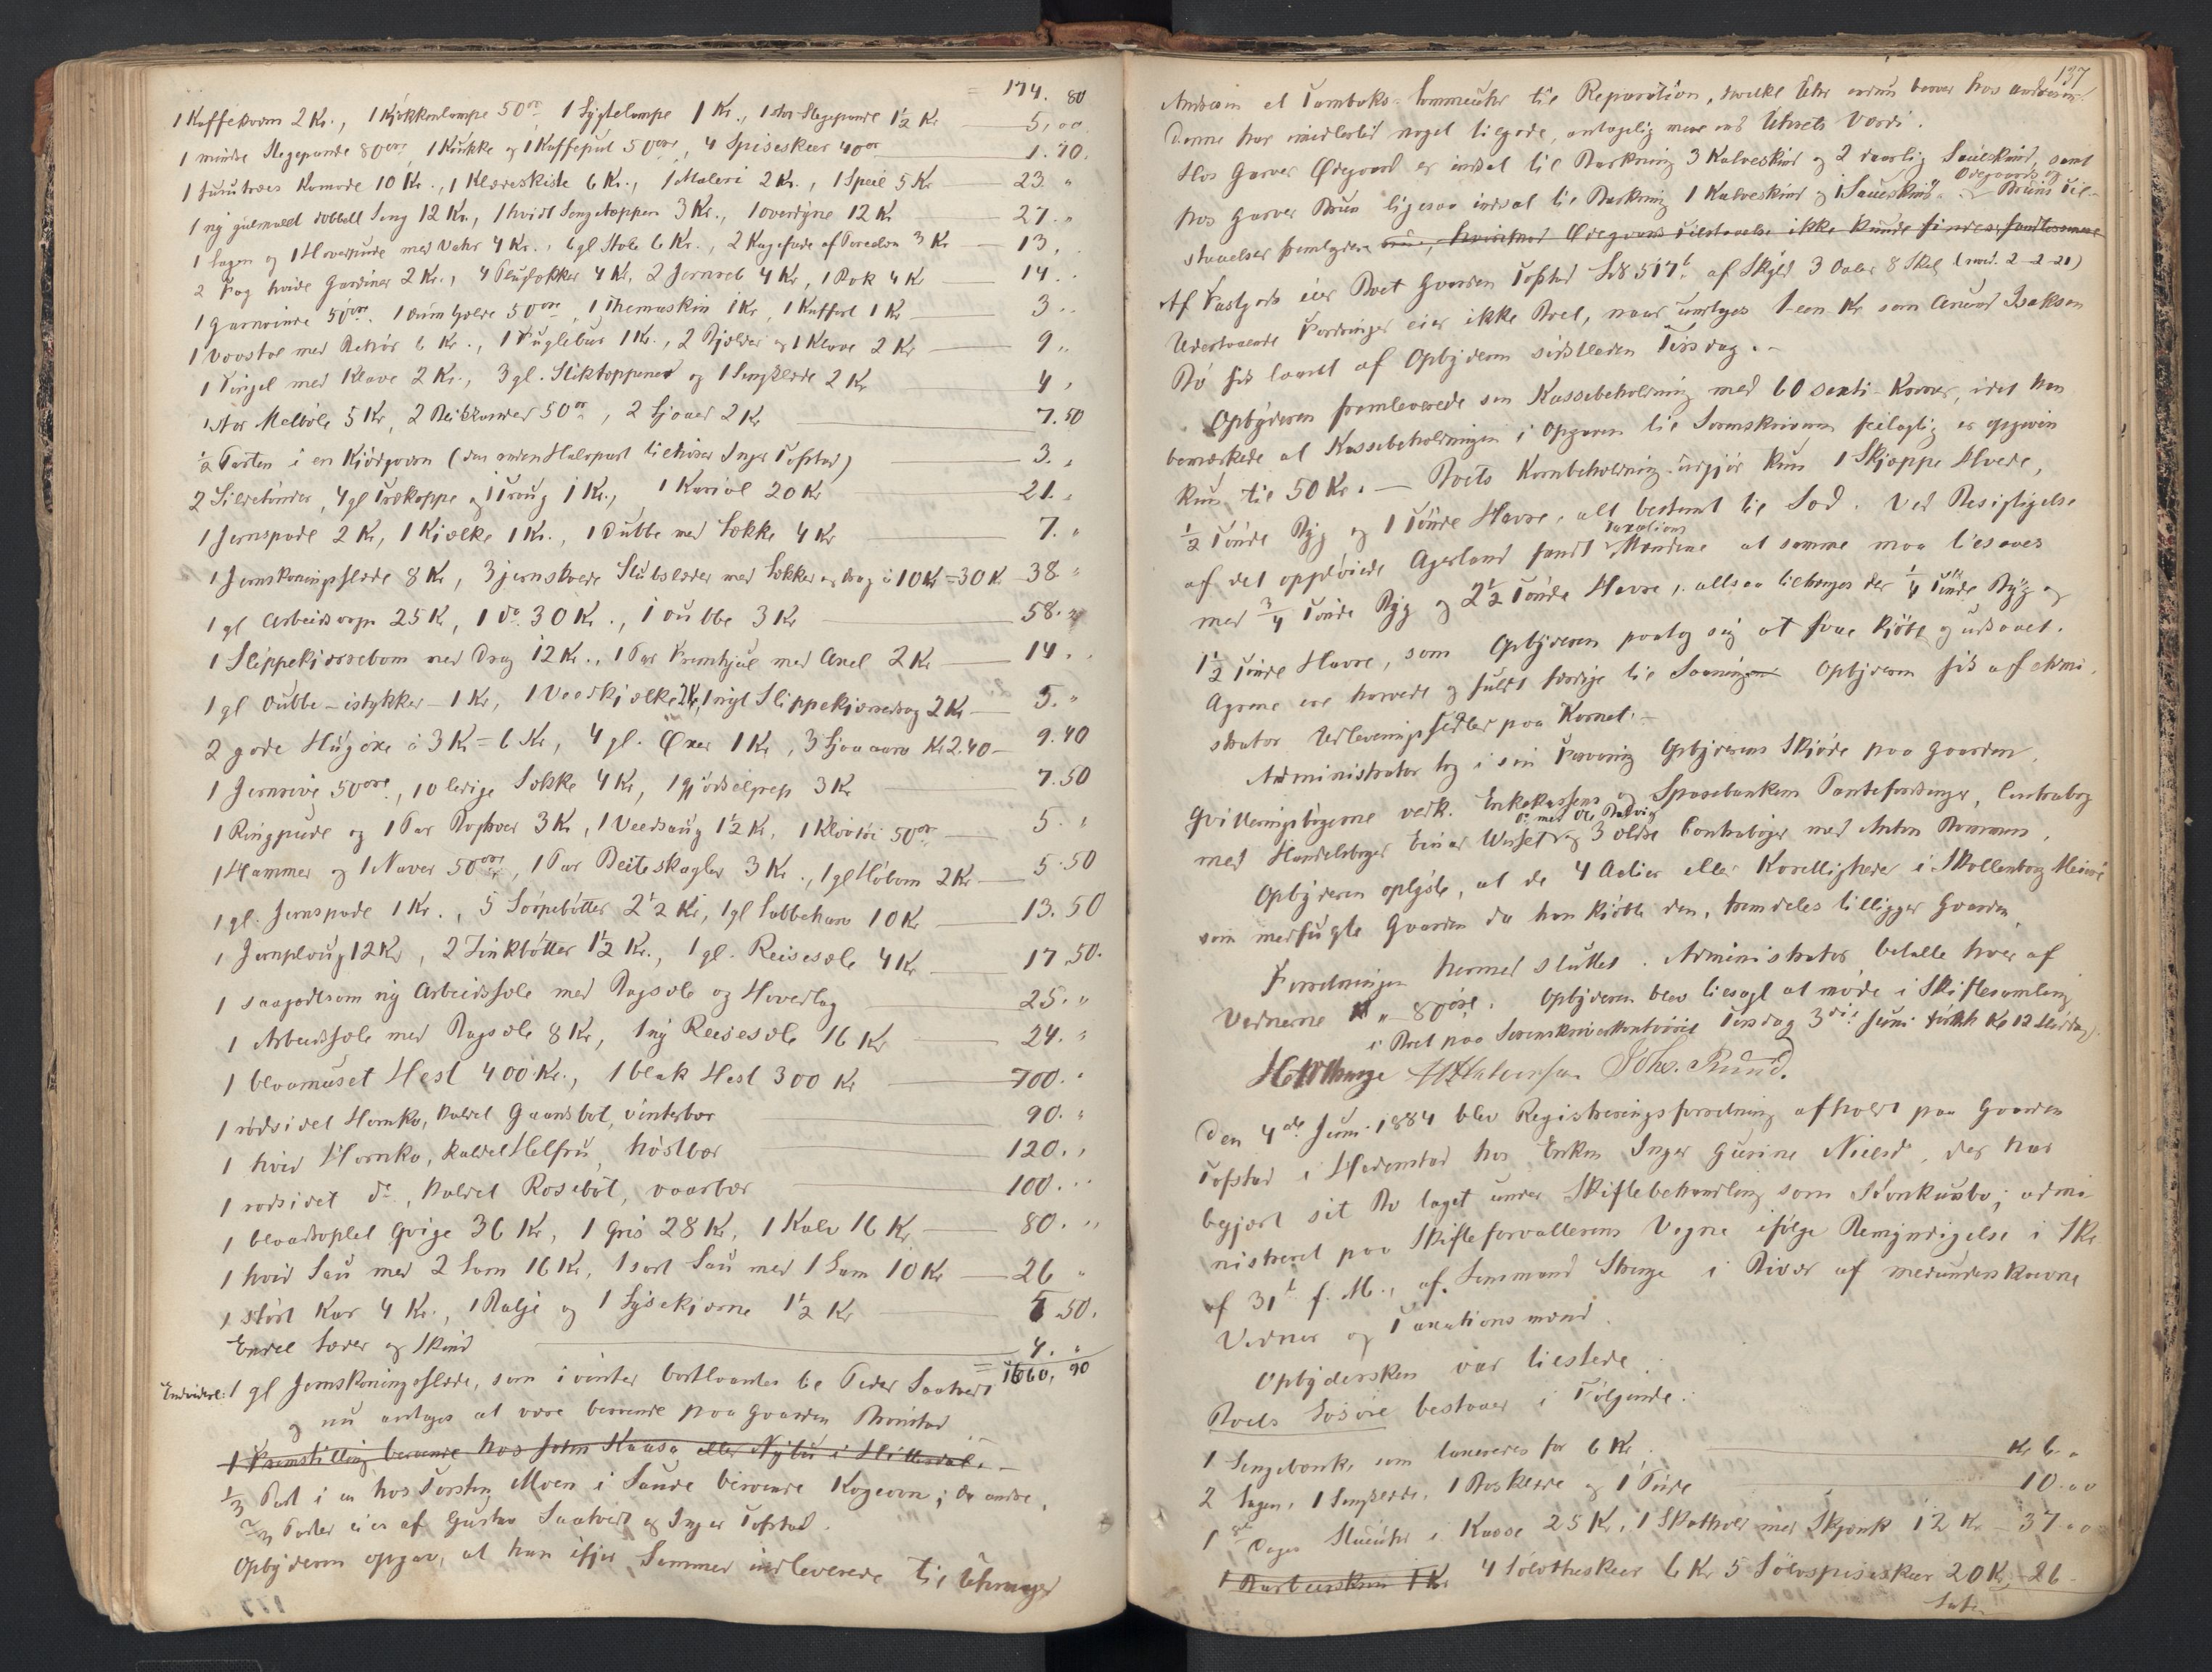 = 174. 80
1 Kaffekværn 2 Kr., 1 Kjøkkenlampe 50 ør, 1 Lygtelampe 1 Kr., 1 stor Stegepande 1½ Kr — 5,00
1 mindre Stegepande 80 øre, 1 Krukke og 1 Kaffepul 50 øre, 4 Spiseskeer 40 ør — 1.70.
1 furutræes Komode 10 Kr., 1 Klædeskiste 6 Kr., 1 Maleri 2 Kr., 1 Speil 5 Kr — 23 "
1 ny gulmalet dobbelt Seng 12 Kr., 1 hvidt Sengetæppe 3 Kr., 1 overdyne 12 Kr — 27. "
1 Lagen og 1 Hovedpude med Vahr 4 Kr., 6 gl Stole 6 Kr., 2 Kagefade af Porcelæn 3 Kr — 13,
2 Fag hvide Gardiner 2 Kr., 4 4 Kr, 2 Jernreb 4 Kr, 1 Rok 4 Kr — 14 ..
1 Garnvinde 50 øre, 1 50 øre, 1 Themaskin 1 Kr, 1 Kuffert 1 Kr — 3 ..
1 Vævstol med Behør 6 Kr., 1 Fuglebur 1 Kr., 2 Bjelder og 1 Klave 2 Kr — 9 ..
1 med Klave 2 Kr., 3 gl. og 1 Sengklæde 2 Kr — 4 ,
1 stor Melbøle 5 Kr, 2 50 ør, 2 Ljaaer 2 Kr — 7.50
½ Parten i en Kjødgværn (den anden Halvpart tilhører Inger Tofstad) — 3. ,
2 Sildetønder, 4 gl Trækoppe og 1 Traug 1 Kr., 1 Kariol 20 Kr — 21. ,
1 Jernspade 2 Kr, 1 Kjælke 1 Kr., 1 Dubbe med Lække 4 Kr — 7. "
1 Jernskoningsslæde 8 Kr, 3 jernskoede med Lækker og drag à 10 Kr = 30 Kr — 38 "
1 gl Arbeidsvogn 25 Kr, 1 do. 30 Kr., 1 Dubbe 3 Kr — 58. "
1 Slippekjærrebom med Drag 12 Kr., 1 Par Fremhjul med Axel 2 Kr — 14 . ,
1 gl Dubbe - istykker - 1 Kr, 1 Veedkjælke 2 Kr, 1 nyt Slippekjærredrag 2 Kr — 5. "
2 gode Hugøxe à 3 Kr = 6 Kr, 4 gl. Øxer 1 Kr, 3 Kr 2.40 — 9.40
1 Jernrive 50 øre, 10 ledige Sække 4 Kr, 1 gjødselgrep 3 Kr — 7.50
1 Ringpude og 1 Par 3 Kr, 1 Veedsaug 1½ Kr, 1 50 ør — 5. "
1 Hammer og 1 Naver 50 øre, 1 Par Beiteskagler 3 Kr., 1 gl Høbom 2 Kr — 5.50
1 gl. Jernspade 1 Kr., 5 Sørpebøtter 2½ Kr, 1 gl Labbeharv 10 Kr — 13. 50
1 Jernploug 12 Kr, 2 Zinkbøtter 1½ Kr., 1 gl. Reisesæle 4 Kr — 17.50.
1 saagodtsom ny Arbeidssæle med Bagsæle og Hovedlag — 25. "
1 Arbeidssæle med Bagsæle 8 Kr, 1 ny Reisesæle 16 Kr — 24. "
1 blaamuset Hest 400 Kr., 1 blak Hest 300 Kr — 700. "
1 rødsidet Hornko, kaldet Gaardsbot, vinterbær — 90. "
1 hvid Hornko, kaldet Helfru, høstbær — 120. ,
1 rødsidet do, kaldet Rosebot, vaarbær — 100. "
1 blaadroplet Qvige 36 Kr, 1 Gris 28 Kr, 1 Kalv 16 Kr — 80. "
1 hvid Sau med 2 Lam 16 Kr, 1 sort Sau med 1 Lam 10 Kr — 26 "
1 stort Kar 4 Kr., 1 Balje og 1 1½ Kr — 5.50.
Endel Læder og Skind — 4. "
= 1660, 90
Endvidere: 1 gl Jernskoningsslæde, som i vinter bortlaantes til Peder Saatvedt
og nu antages at være beroende paa Gaarden
1 Fremstilling beroende hos John Kaasa eller i Hitterdal. —
⅓ Part i en hos Torsten Moen i Saude beroende Kogeovn; de andre
⅔ Parter eies af Gustav Saatvedt og Inger Tofstad.
Opbyderen opgav, at han ifjor Sommer indleverede til Uhrmager
137
Andersen et Tombaks-Lommeuhr til Reparation, hvilke Uhr endnu beroer hos Andersen.
Denne har imidlertid noget tilgode, antagelig mere end Uhrets Værdi.
Hos Garver Ødegaard er indsat til Barkning 3 Kalveskind og 2 daarlig Saueskind, samt
hos Garver Bruu ligesaa indsat til Barkning 1 Kalveskind og 1 Saueskind. Ødegaards og Bruus Til-
staaelser fremlagdes Ødegaards Tilstaaelse ikke kunde findes
Af Fastgods eier Boet Gaarden Tofstad L.No 517 b af Skyld 3 Daler 8 Skil (rev. 2-2-21)
Udestaaende Fordringer eier ikke Boet, naar undtages 1-en Kr som Amund Isaksen
Bø fik laant af Opbyderen sidstleden Tirsdag. —
Opbyderen fremleverede sin Kassebeholdning med 60 sexti-Kroner, idet han
bemærkede at Kassebeholdningen i Opgaven til Sorenskriveren feilagtig er opgiven
kun til 50 Kr. — Boets Kornbeholdning udgjør kun 1 Skjæppe Hvede,
½ Tønde Byg og 1 Tønde Havre, alt bestemt til Sæd. Ved Besigtigelse
af det oppløiede Agerland fandt Taxations Mændene at samme maa tilsaaes
med ¾ Tønde Byg og 2½ Tønde Havre, altsaa tiltrænges der ¼ Tønde Byg og
1½ Tønde Havre, som Opbyderen paatog sig at faae kjøbt og udsaaet.
Agrene ere harvede og fuldt færdige til Saaningen Opbyderen fik af Admi-
strator Udleveringssedler paa Kornet. —
Administrator tog i sin Forvaring Opbyderens Skjøde paa Gaarden,
Qvitteringsbøgerne vedk. Enkekassens og Sparebankens Pantefordringer, Contrabog
med Handelsborger Einar Do med Ole og 3 ældre Contrabøger med Anton
Opbyderen oplyste, at de 4 Actier eller Korellighæder i Skollenborg Meieri
som medfulgte Gaarden da han kjøbte den, fremdeles tilligger Gaarden.
Forretningen hermed sluttet. Administrator betalte hver af
Vidnerne Kr " 80 øre. Opbyderen blev tilsagt at møde i Skiftesamling
i Boet paa Sorenskriverkontoiret Tirsdag 3die Juni Kl 12 Middag.
Joh. Rund.
Den 4de Juni 1884 blev Registreringsforretning afholdt paa Gaarden
Tofstad i Hedenstad hos Enken Inger Gurine Nielsd, der har
begjært sit Bo taget under Skiftebehandling som Konkursbo; admi-
nistreret paa Skifteforvalterens Vegne ifølge Bemyndigelse i Skr
af 31te f. M., af Lensmand Strenge i Bivær af medunderskrevne
Vidner og Taxationsmænd.
Opbydersken var tilstede.
Boets Løsøre bestaaer i Følgende:
1 Sengebænk, som taxeredes for 6 Kr. — Kr 6. "
2 Lagen, 1 Sengklæde, 1 og 1 Pude — 10.00
1 8te Dages Stueuhr i Kasse 25 Kr, 1 Skathol med Skjænk 12 Kr — 37.00
1 1 Kr 4 Sølvtheskeer 6 Kr 5 Sølvspiseskeer 20 Kr, 26 —